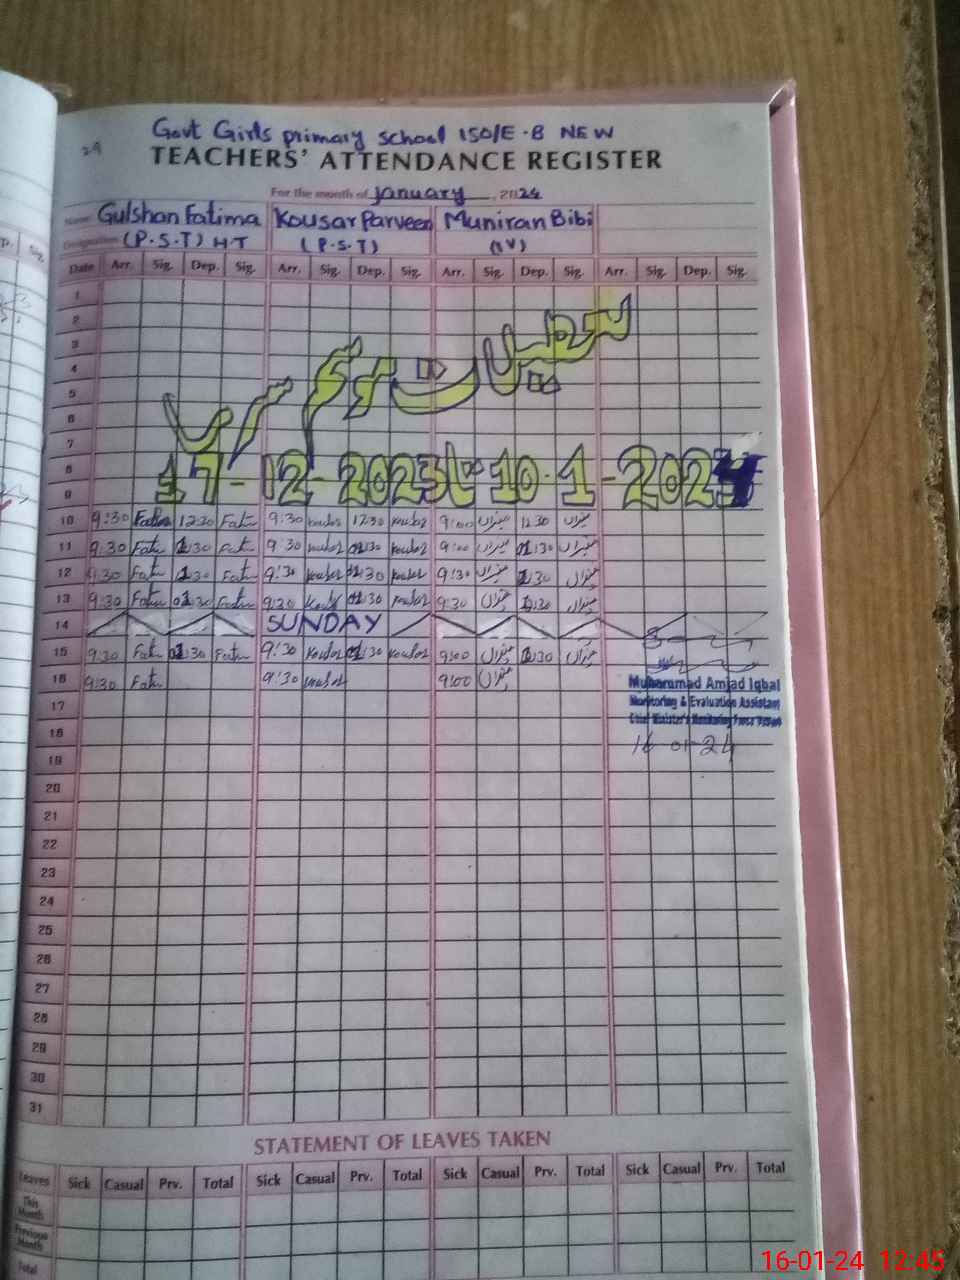 29
Govt Girls primary school 150/E.B NEW
TEACHERS' ATTENDANCE REGISTER
For the month of January, 2024
Name Gulshan Fatima Kousar Parveen Muniran Bibi
Designation (P.S.T) H.T (P.S.T) (IV)
Date Arr. Sig. Dep. Sig. Arr. Sig. Dep. Sig. Arr. Sig. Dep. Sig. Arr. Sig. Dep. Sig.
1
2
3
4
5
6
7
8
9
تعطیلات موسم سرما
17-12-2023 تا 10-1-2024
10 9:30 Fatim 12:30 Fatim 9:30 kousar 12:30 kousar 9:00 منیراں 12:30 منیراں
11 9:30 Fatim 1:30 Fatim 9:30 kousar 01:30 kousar 9:00 منیراں 01:30 منیراں
12 9:30 Fatim 1:30 Fatim 9:30 kousar 01:30 kousar 9:30 منیراں 1:30 منیراں
13 9:30 Fatim 01:30 Fatim 9:30 kousar 01:30 kousar 9:30 منیراں 1:30 منیراں
14 SUNDAY
15 9:30 Fatim 01:30 Fatim 9:30 kousar 01:30 kousar 9:00 منیراں 1:30 منیراں
16 9:30 Fatim 9:30 kousar 9:00 منیراں
Muhammad Amjad Iqbal
Monitoring & Evaluation Assistant
Chief Minister's Monitoring Force
16-01-24
17
18
19
20
21
22
23
24
25
26
27
28
29
30
31
STATEMENT OF LEAVES TAKEN
Leaves Sick Casual Prv. Total Sick Casual Prv. Total Sick Casual Prv. Total Sick Casual Prv. Total
This Month
Previous Month
Total
16-01-24 12:45